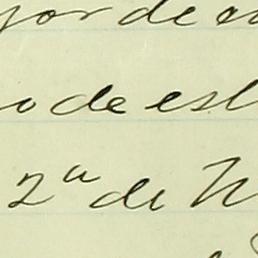 yor de e
o de est
2ª de N